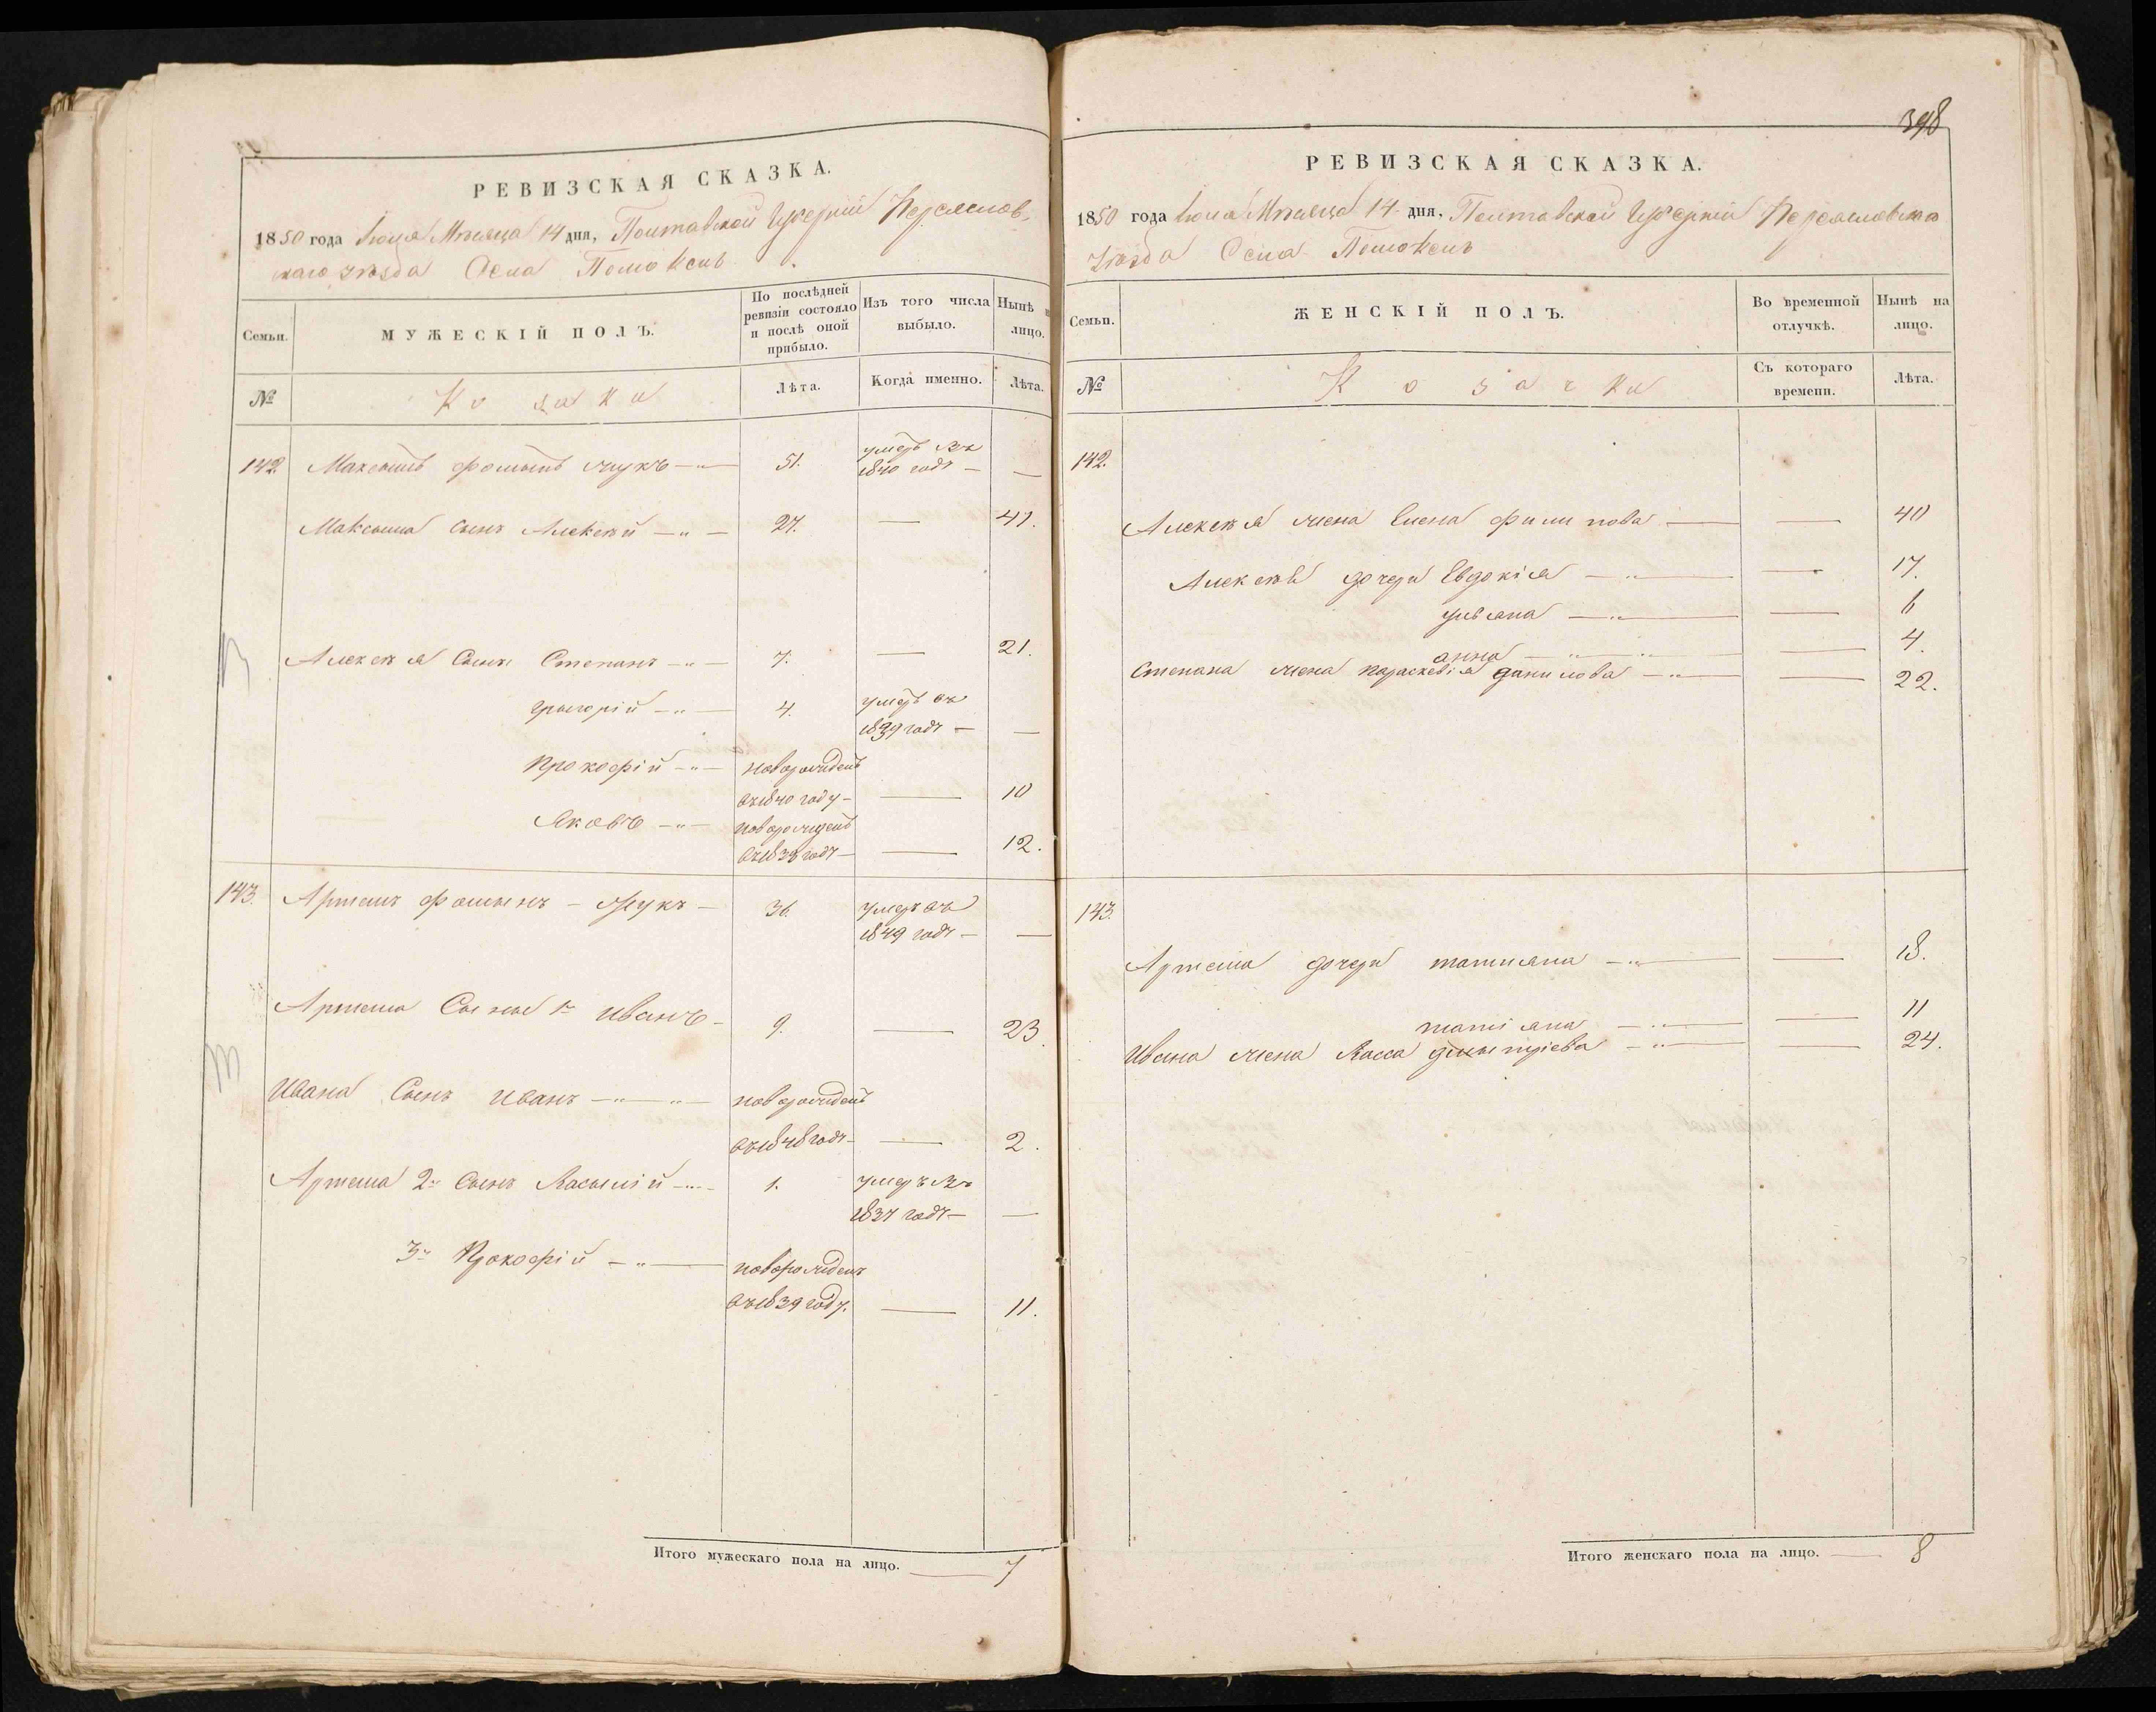 РЕВИЗСКАЯ СКАЗКА.
1850 года Іюля Мѣсяца 14 дня, Полтавской Губерніи Переяслов-
скаго уѣзда Села Помоклей
Семьи. МУЖЕСКІЙ ПОЛЪ. По послѣдней ревизіи состояло и послѣ оной прибыло. Изъ того числа выбыло. Нынѣ на лицо.
№ Козаки Лѣта. Когда именно. Лѣта.
142. Максимъ Фоминъ Жукъ 51. умеръ въ
1840 году —
Максима сынъ Алексѣй 27. — 41.
Алексѣя сыны Степанъ 7. — 21.
Григорій 4. умеръ въ
1839 году —
Прокофій новорожденъ
въ 1840 году — 10
Яковъ новорожденъ
въ 1838 году — 12.
143. Артемъ Фоминъ Жукъ 36. умеръ въ
1849 году —
Артема сыны 1й Иванъ 9. — 23.
Ивана сынъ Иванъ новорожденъ
въ 1848 году — 2.
Артема 2й сынъ Василій 1. умеръ въ
1837 году —
3й Прокофій новорожденъ
въ 1839 году. — 11.
Итого мужескаго пола на лицо. — 7
398
РЕВИЗСКАЯ СКАЗКА.
1850 года Іюля Мѣсяца 14 дня, Полтавской Губерніи Переясловскаго
уѣзда Села Помоклей
Семьи. ЖЕНСКІЙ ПОЛЪ. Во временной отлучкѣ. Нынѣ на лицо.
№ Козачки Съ котораго времени. Лѣта.
142.
Алексѣя жена Елена Филипова — 40
Алексѣя дочери Евдокія — 17.
Ульяна — 6
Анна — 4.
Степана жена Параскевія Данилова — 22.
143.
Артема дочери Татіяна — 18.
Татіяна — 11
Ивана жена Васса Дмытріева — 24.
Итого женскаго пола на лицо. — 8